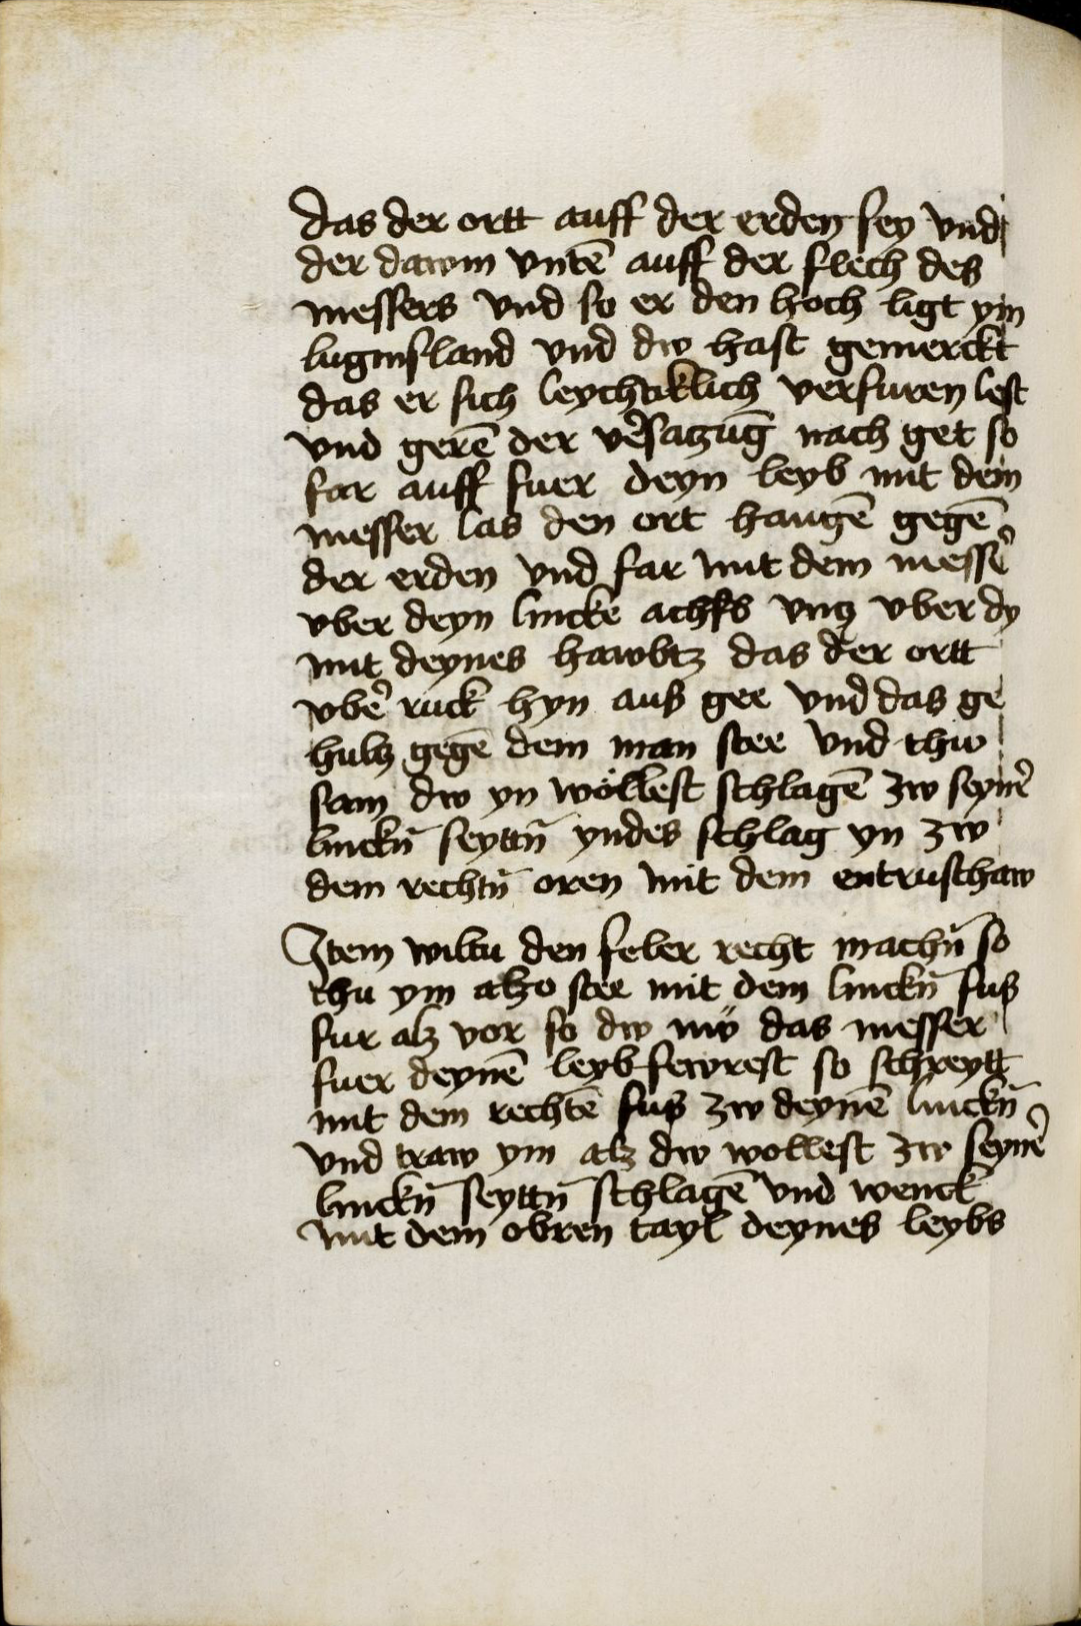 das der ortt auff der erden sey vnd
der dawm vntē auff der flech des
messers vnd so er den hoch ligt ym
luginsland vnd dw hast gemerckt
das er sich leychtiklich verfuren lest
vnd gerē der v̉satzūg nach get so
far auff fuer deyn leyb mit dem
messer las den ort hangē gegē
der erden vnd far mit dem mess̉
vber deyn lincke achsß vntz vber dy
mit deynes hawbtz das der ortt
vb̉ ruck hyn auß gee vnd das ge
hultz gegē dem man stee vnd thw
sam dw yn wöllest schlagē zw seyn̉
linckn̄ seyttn̄ yndes schlag yn zw
dem rechtn̄ oren mit dem entruschaw
Item wiltu den feler recht machn̄ so
thu ym alzo stee mit dem linckn̄ fuß
fur alz vor so dw nw̎ das messer
fuer deynē leyb fewrest so schreytt
mit dem rechtē fuß zw deynē linckn̄
vnd traw ym alz dw wollest zw seyn̉
linckn̄ seyttn̄ schlagē vnd wenck
mit dem obren tayl deynes leybs